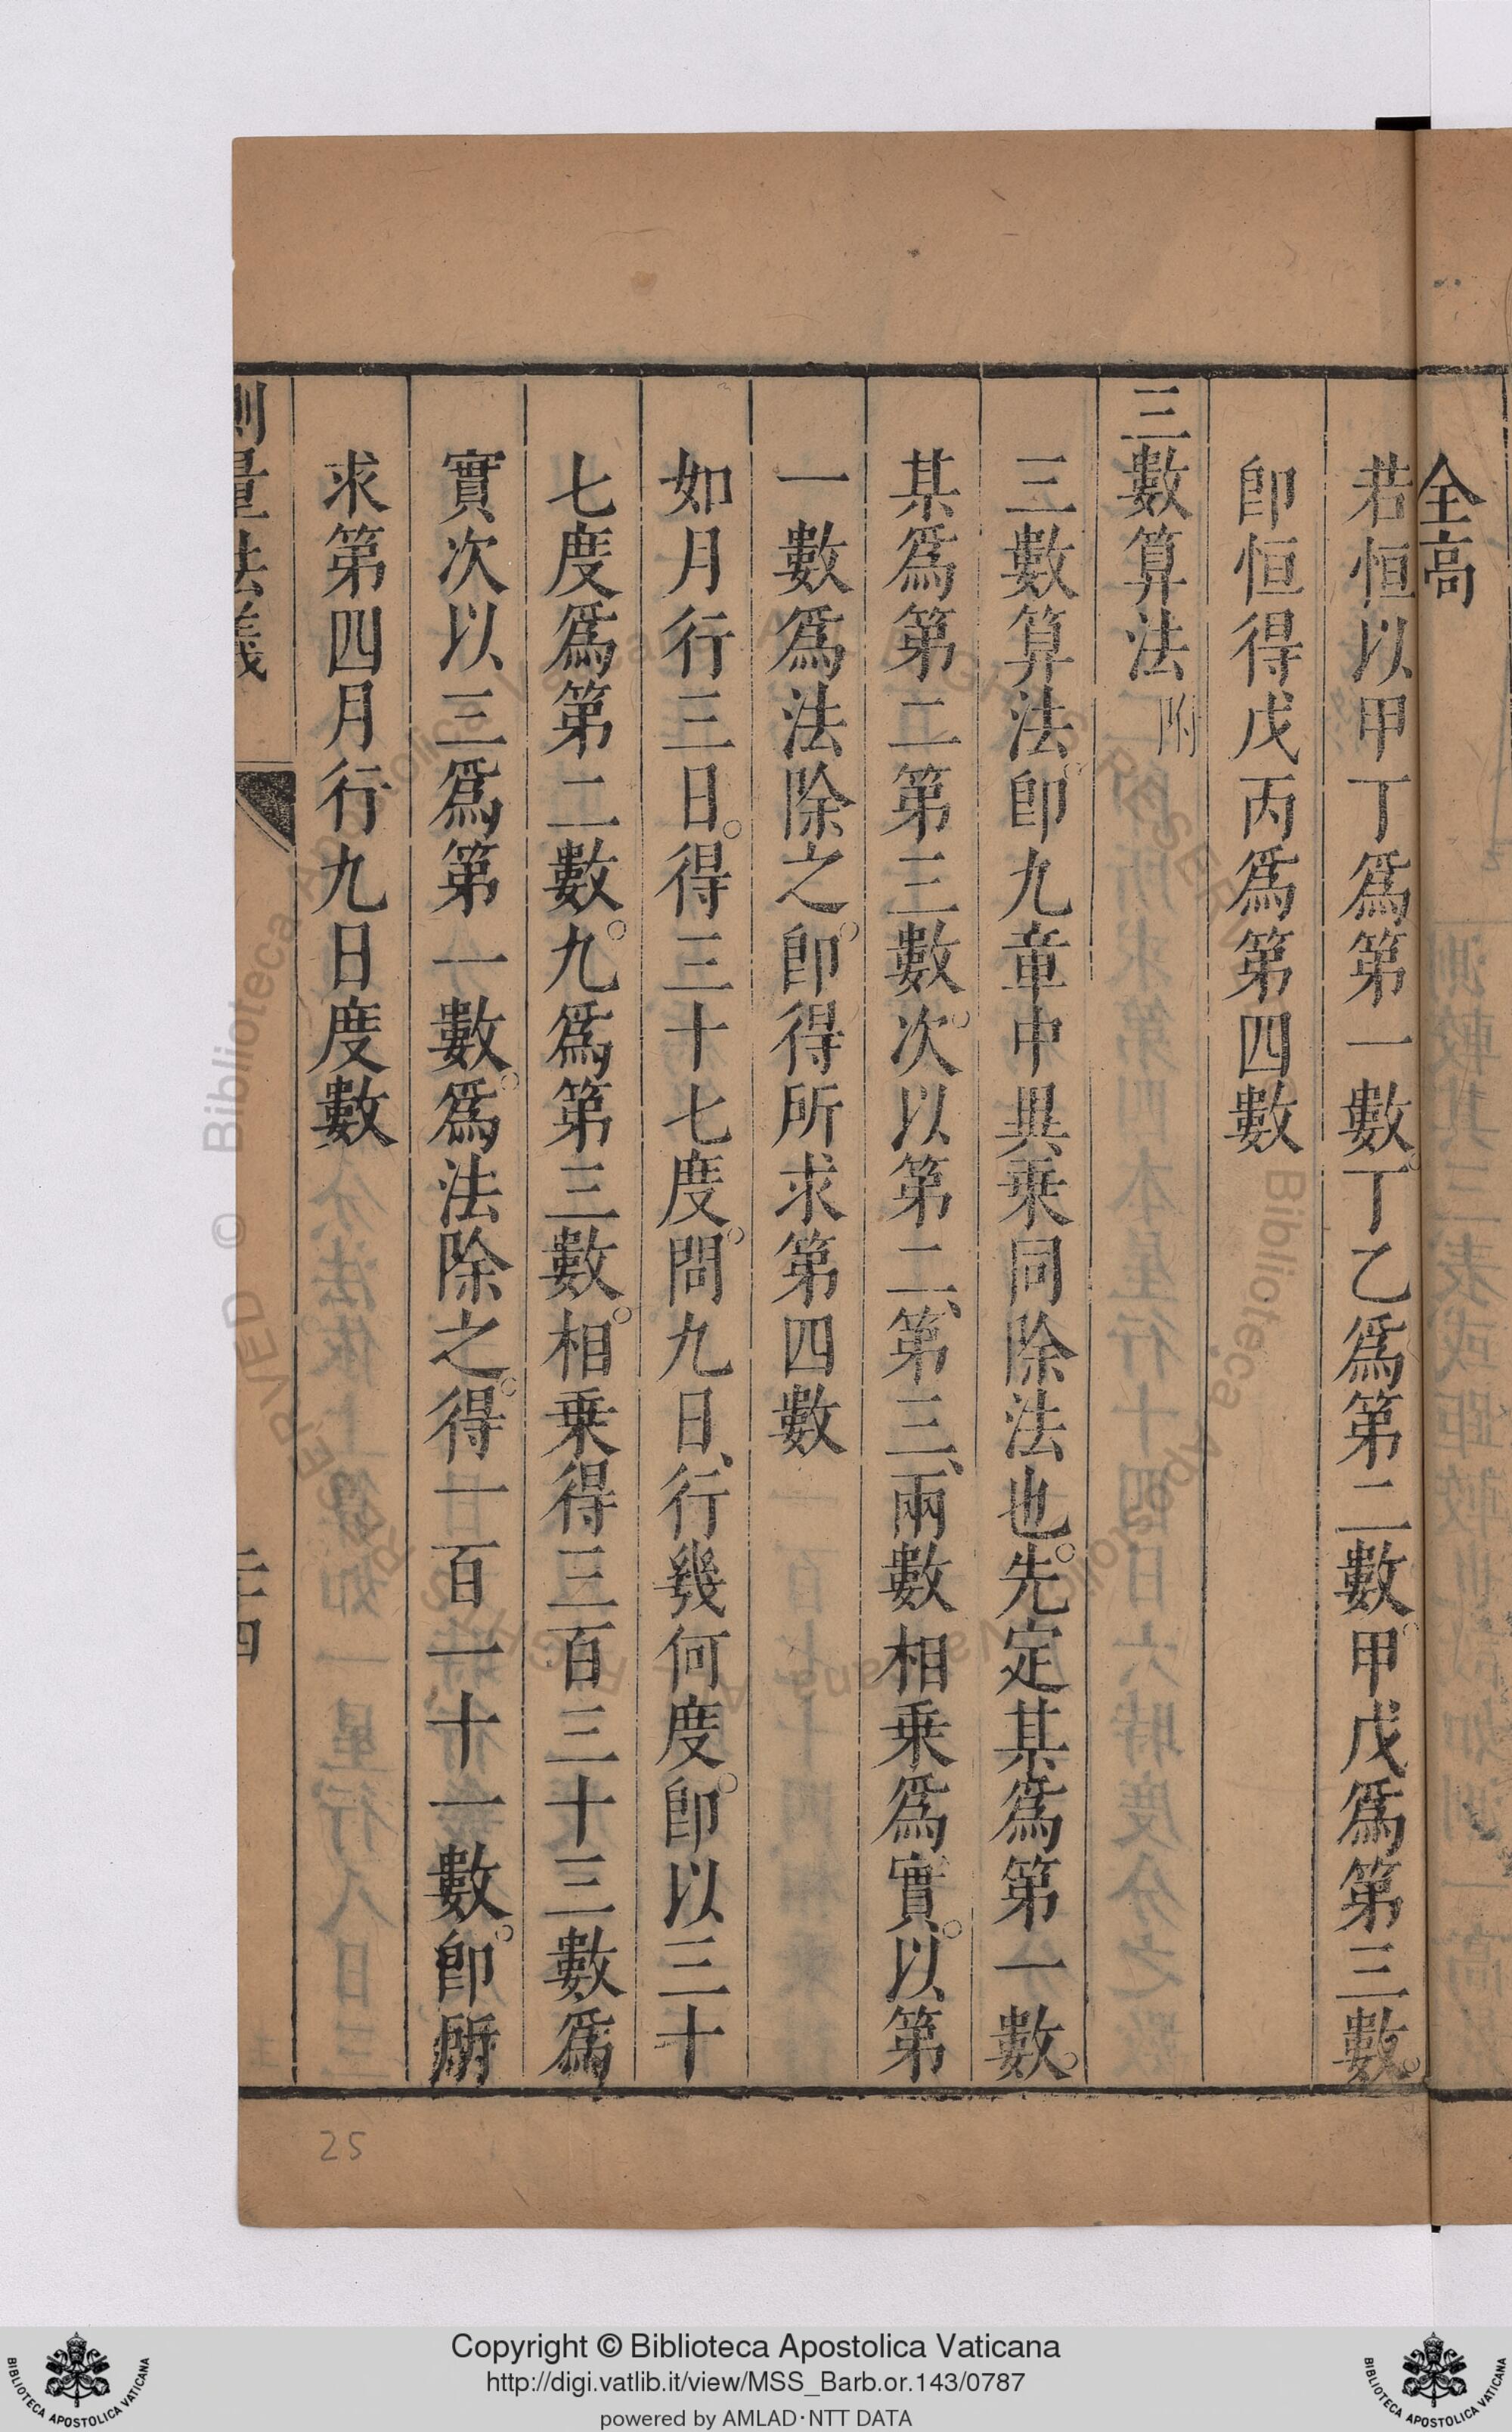 全高
若恒以甲丁爲第一數。丁乙爲第二數。甲戊爲第三數。
卽恒得戊丙爲第四數
三數算法附
三數算法。卽九章中異乗同除法也。先定某爲第一數。
某爲第二第三數。次以第二、第三、兩數相乗爲實。以第
一數爲法除之。卽得所求第四數
如月行三日。得三十七度。問九日、行幾何度。卽以三十
七度爲第二數。九爲第三數。相乗得三百三十三數爲
實次以三爲第一數。爲法除之。得一百一十一數。卽所
求第四月行九日度數
測量法義
二十四
25
Copyright © Biblioteca Apostolica Vaticana
http://digi.vatlib.it/view/MSS_Barb.or.143/0787
powered by AMLAD·NTT DATA
BIBLIOTECA APOSTOLICA VATICANA
BIBLIOTECA APOSTOLICA VATICANA